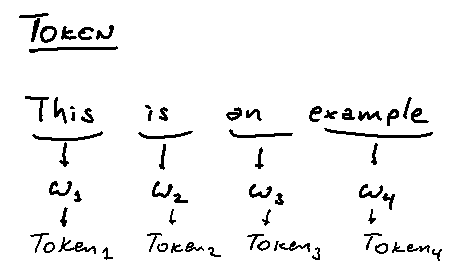 TOKEN
This is an example
w₁ w₂ w₃ w₄
Token₁ Token₂ Token₃ Token₄